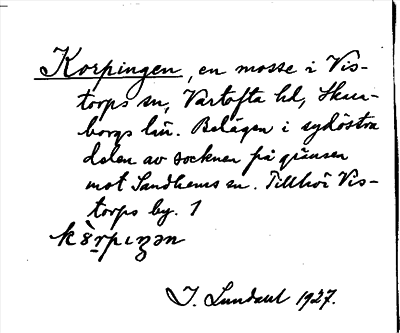 Korpingen, en mosse i Vis-
torps sn, Vartofta hd, Skara-
borgs län. Belägen i sydöstra
delen av socknen på gränsen
mot Sandhems sn. Tillhör Vis-
torps by. 1
J. Lundahl 1927.